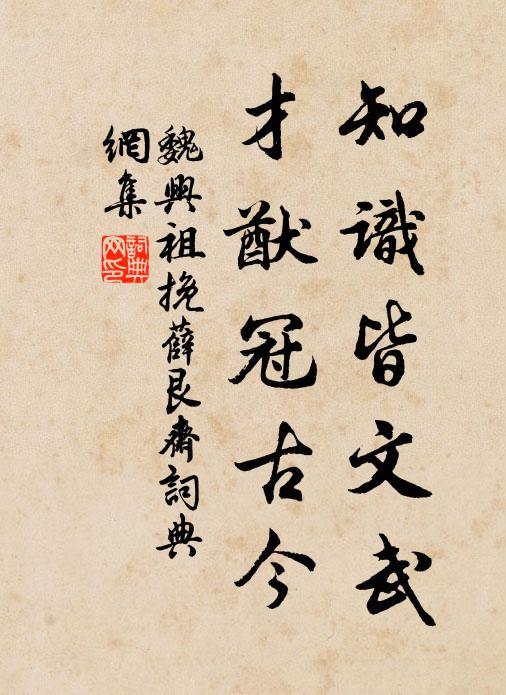 知識皆文武
才猷冠古今
魏興祖挽薛艮齋詞典
網集
詞典
网印